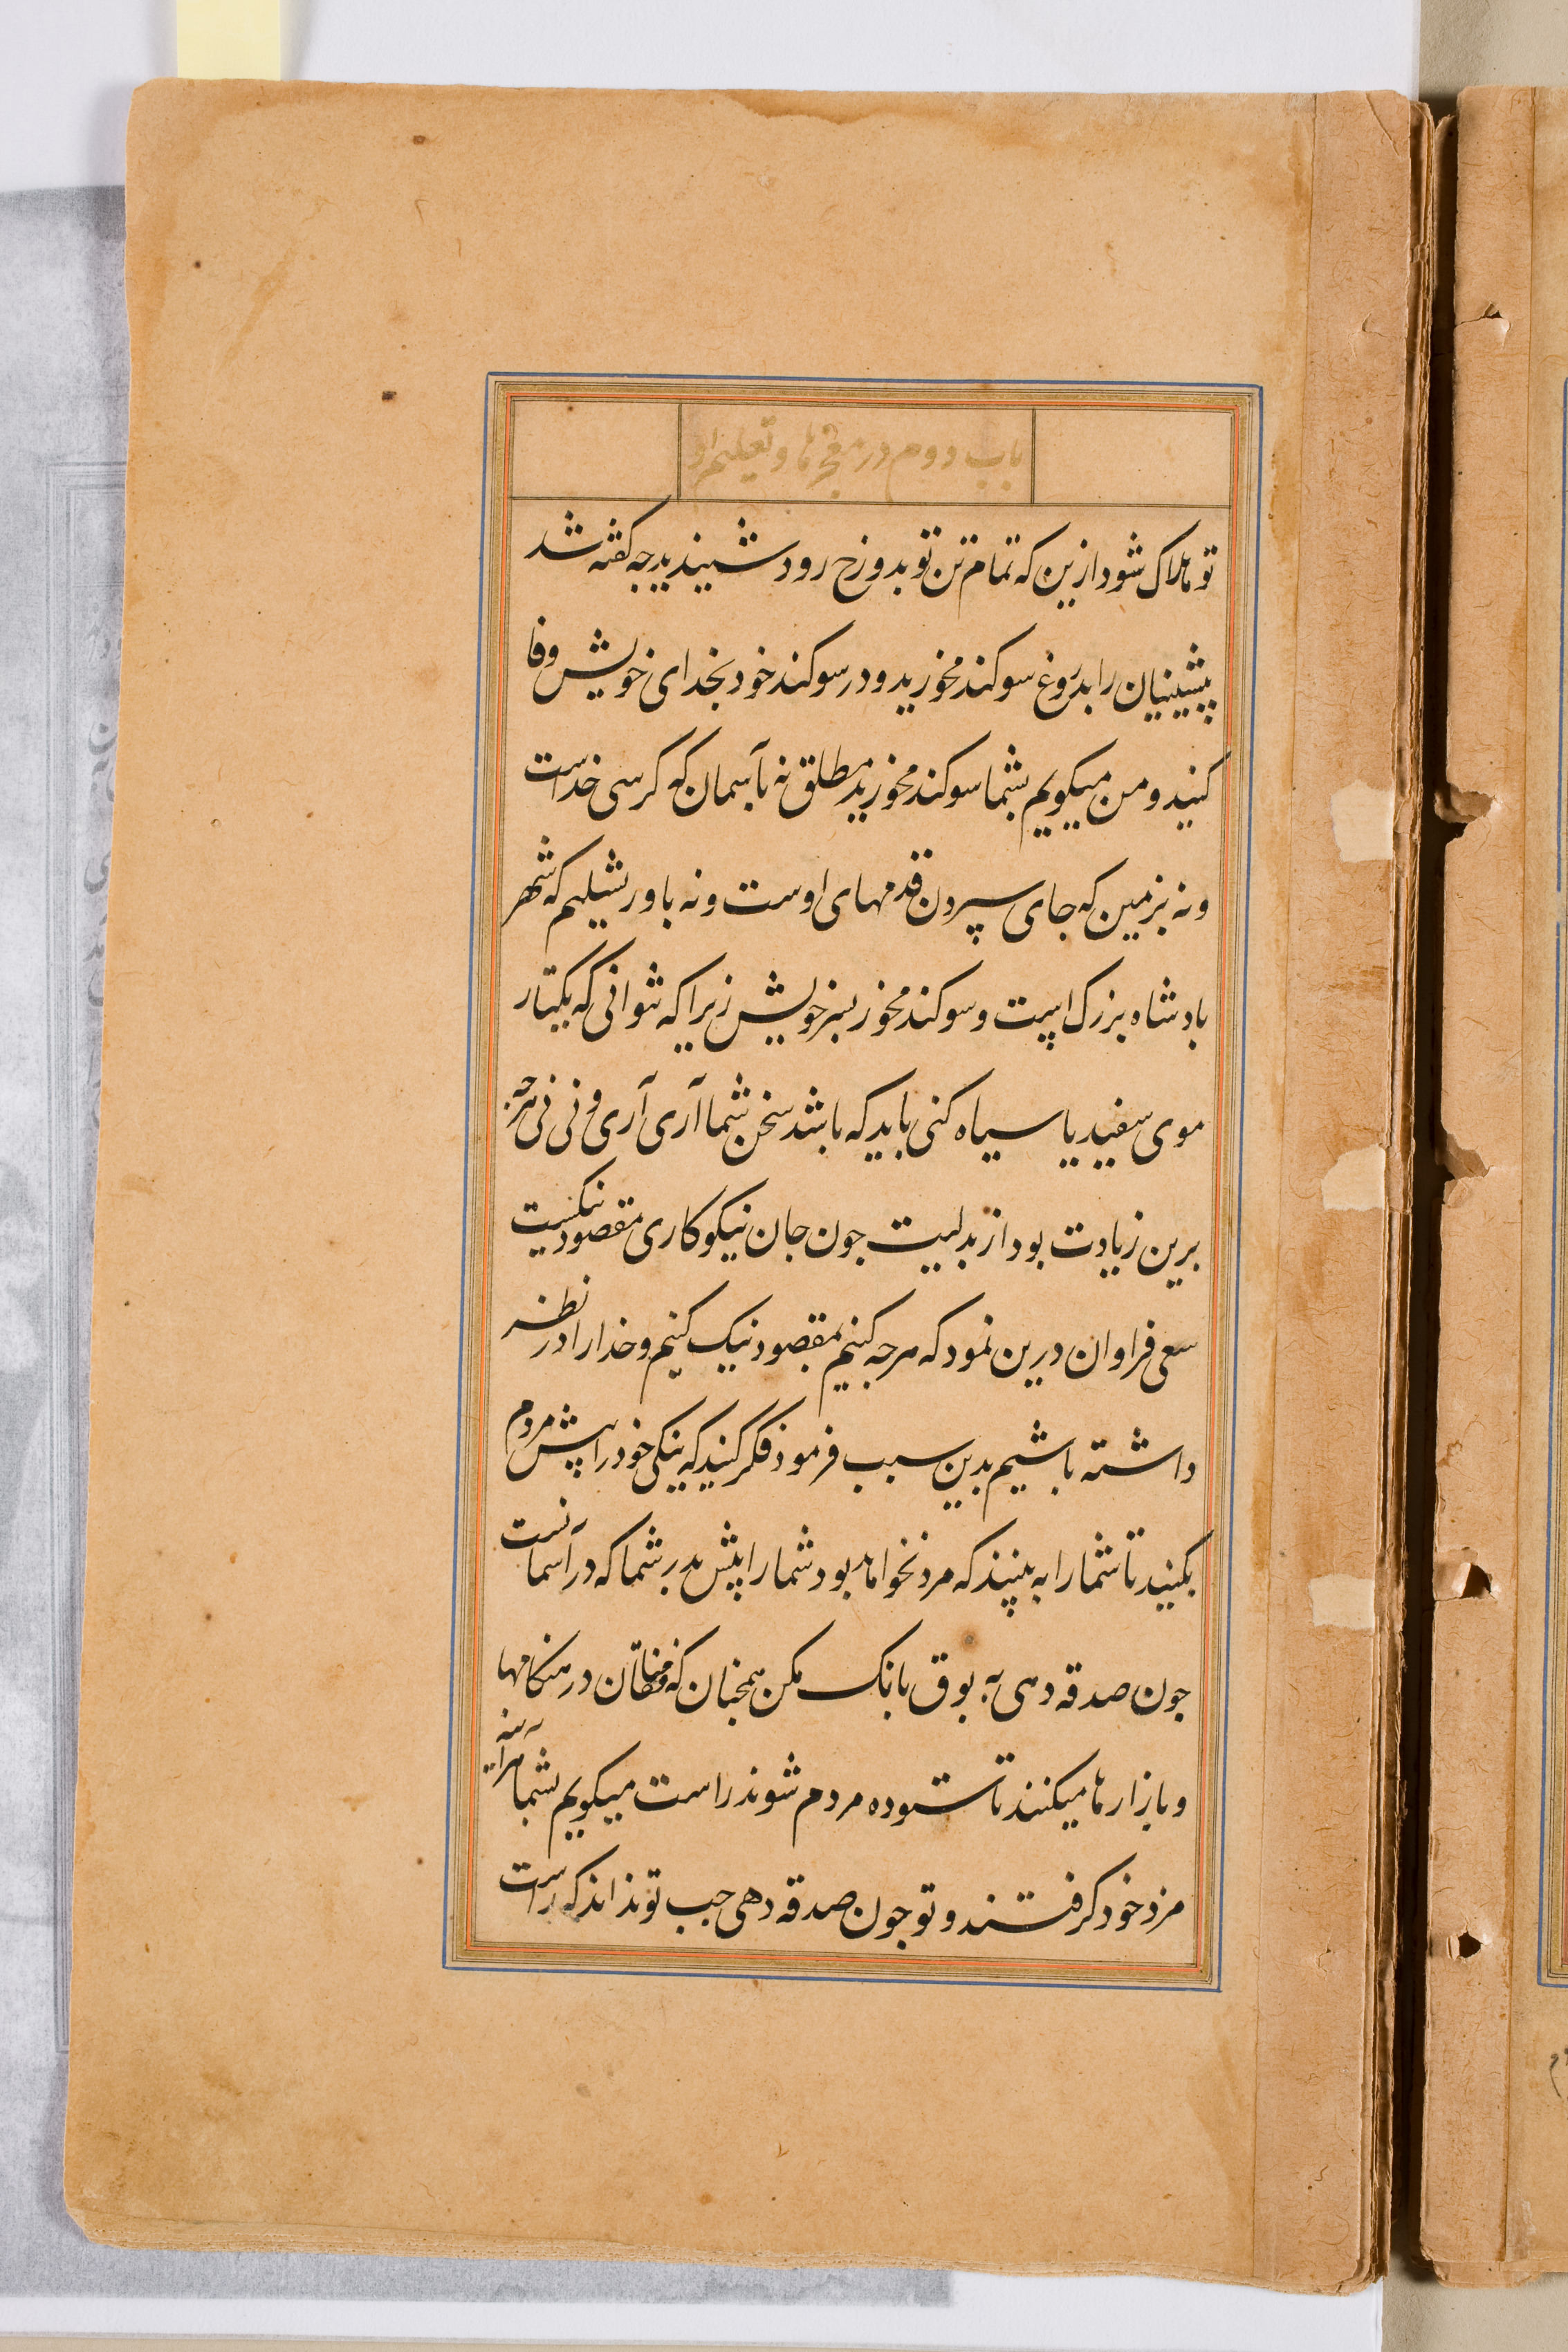 باب دوم در معجزها و تعلیم او
تو هلاک شود ازین که تمام تن تو بدوزخ رود شنیدید جه کفته شد
پیشینیان را بدروغ سوکند مخورید و در سوکند خود بخدای خویش وفا
کنید و من میکویم بشما سوکند مخورید مطلق نه بآسمان که کرسی خداست
و نه بزمین که جای سپردن قدمهای اوست و نه باورشلیم که شهر
بادشاه بزرک است و سوکند مخور بسر خویش زیرا که نتوانی که یکتار
موی سفید یا سیاه کنی باید که باشد سخن شما آری آری و نی نی هرجه
برین زیادت بود از بدلیست جون جان نیکوکاری مقصود نیکست
سعی فراوان درین نمود که هرجه کنیم بمقصود نیک کنیم و خدا را در نظر
داشته باشیم بدین سبب فرمود فکر کنید که نیکی خود را پیش مردم
بکنید تا شما را به بینند که مزد نخواهد بود شما را پیش پدر شما که در آسمانست
جون صدقه دهی به بوق بانک مکن همجنان که منافقان در هنکامها
و بازارها میکنند تا ستوده مردم شوند راست میکویم بشما هرآینه
مزد خود کرفتند و تو جون صدقه دهی جب تو نداند که راست